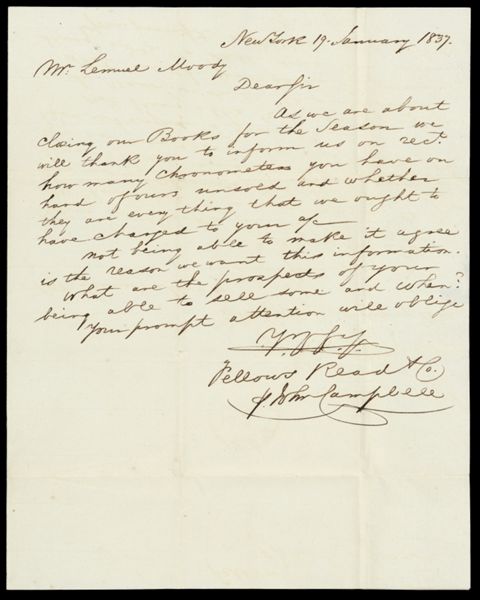 New York 19. January 1837.
Mr. Lemuel Moody
Dear Sir
As we are about
closing our Books for the Season we
will thank you to inform us on rect.
how many chronometers you have on
hand of ours unsold and whether
they are everything that we ought to
have charged to your a/c
not being able to make it agree
is the reason we want this information.
What are the prospects of your
being able to sell some and when?
Your prompt attention will oblige
Fellows Read & Co.
John Campbell